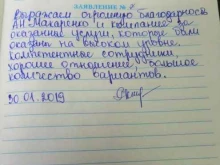 ЗАЯВЛЕНИЕ № 7
Выражаем огромную благодарность
АН Макаренко и компании за
оказанные услуги, которые были
оказаны на высоком уровне.
Компетентные сотрудники,
хорошее отношение, большое
количество вариантов.
20.01.2019